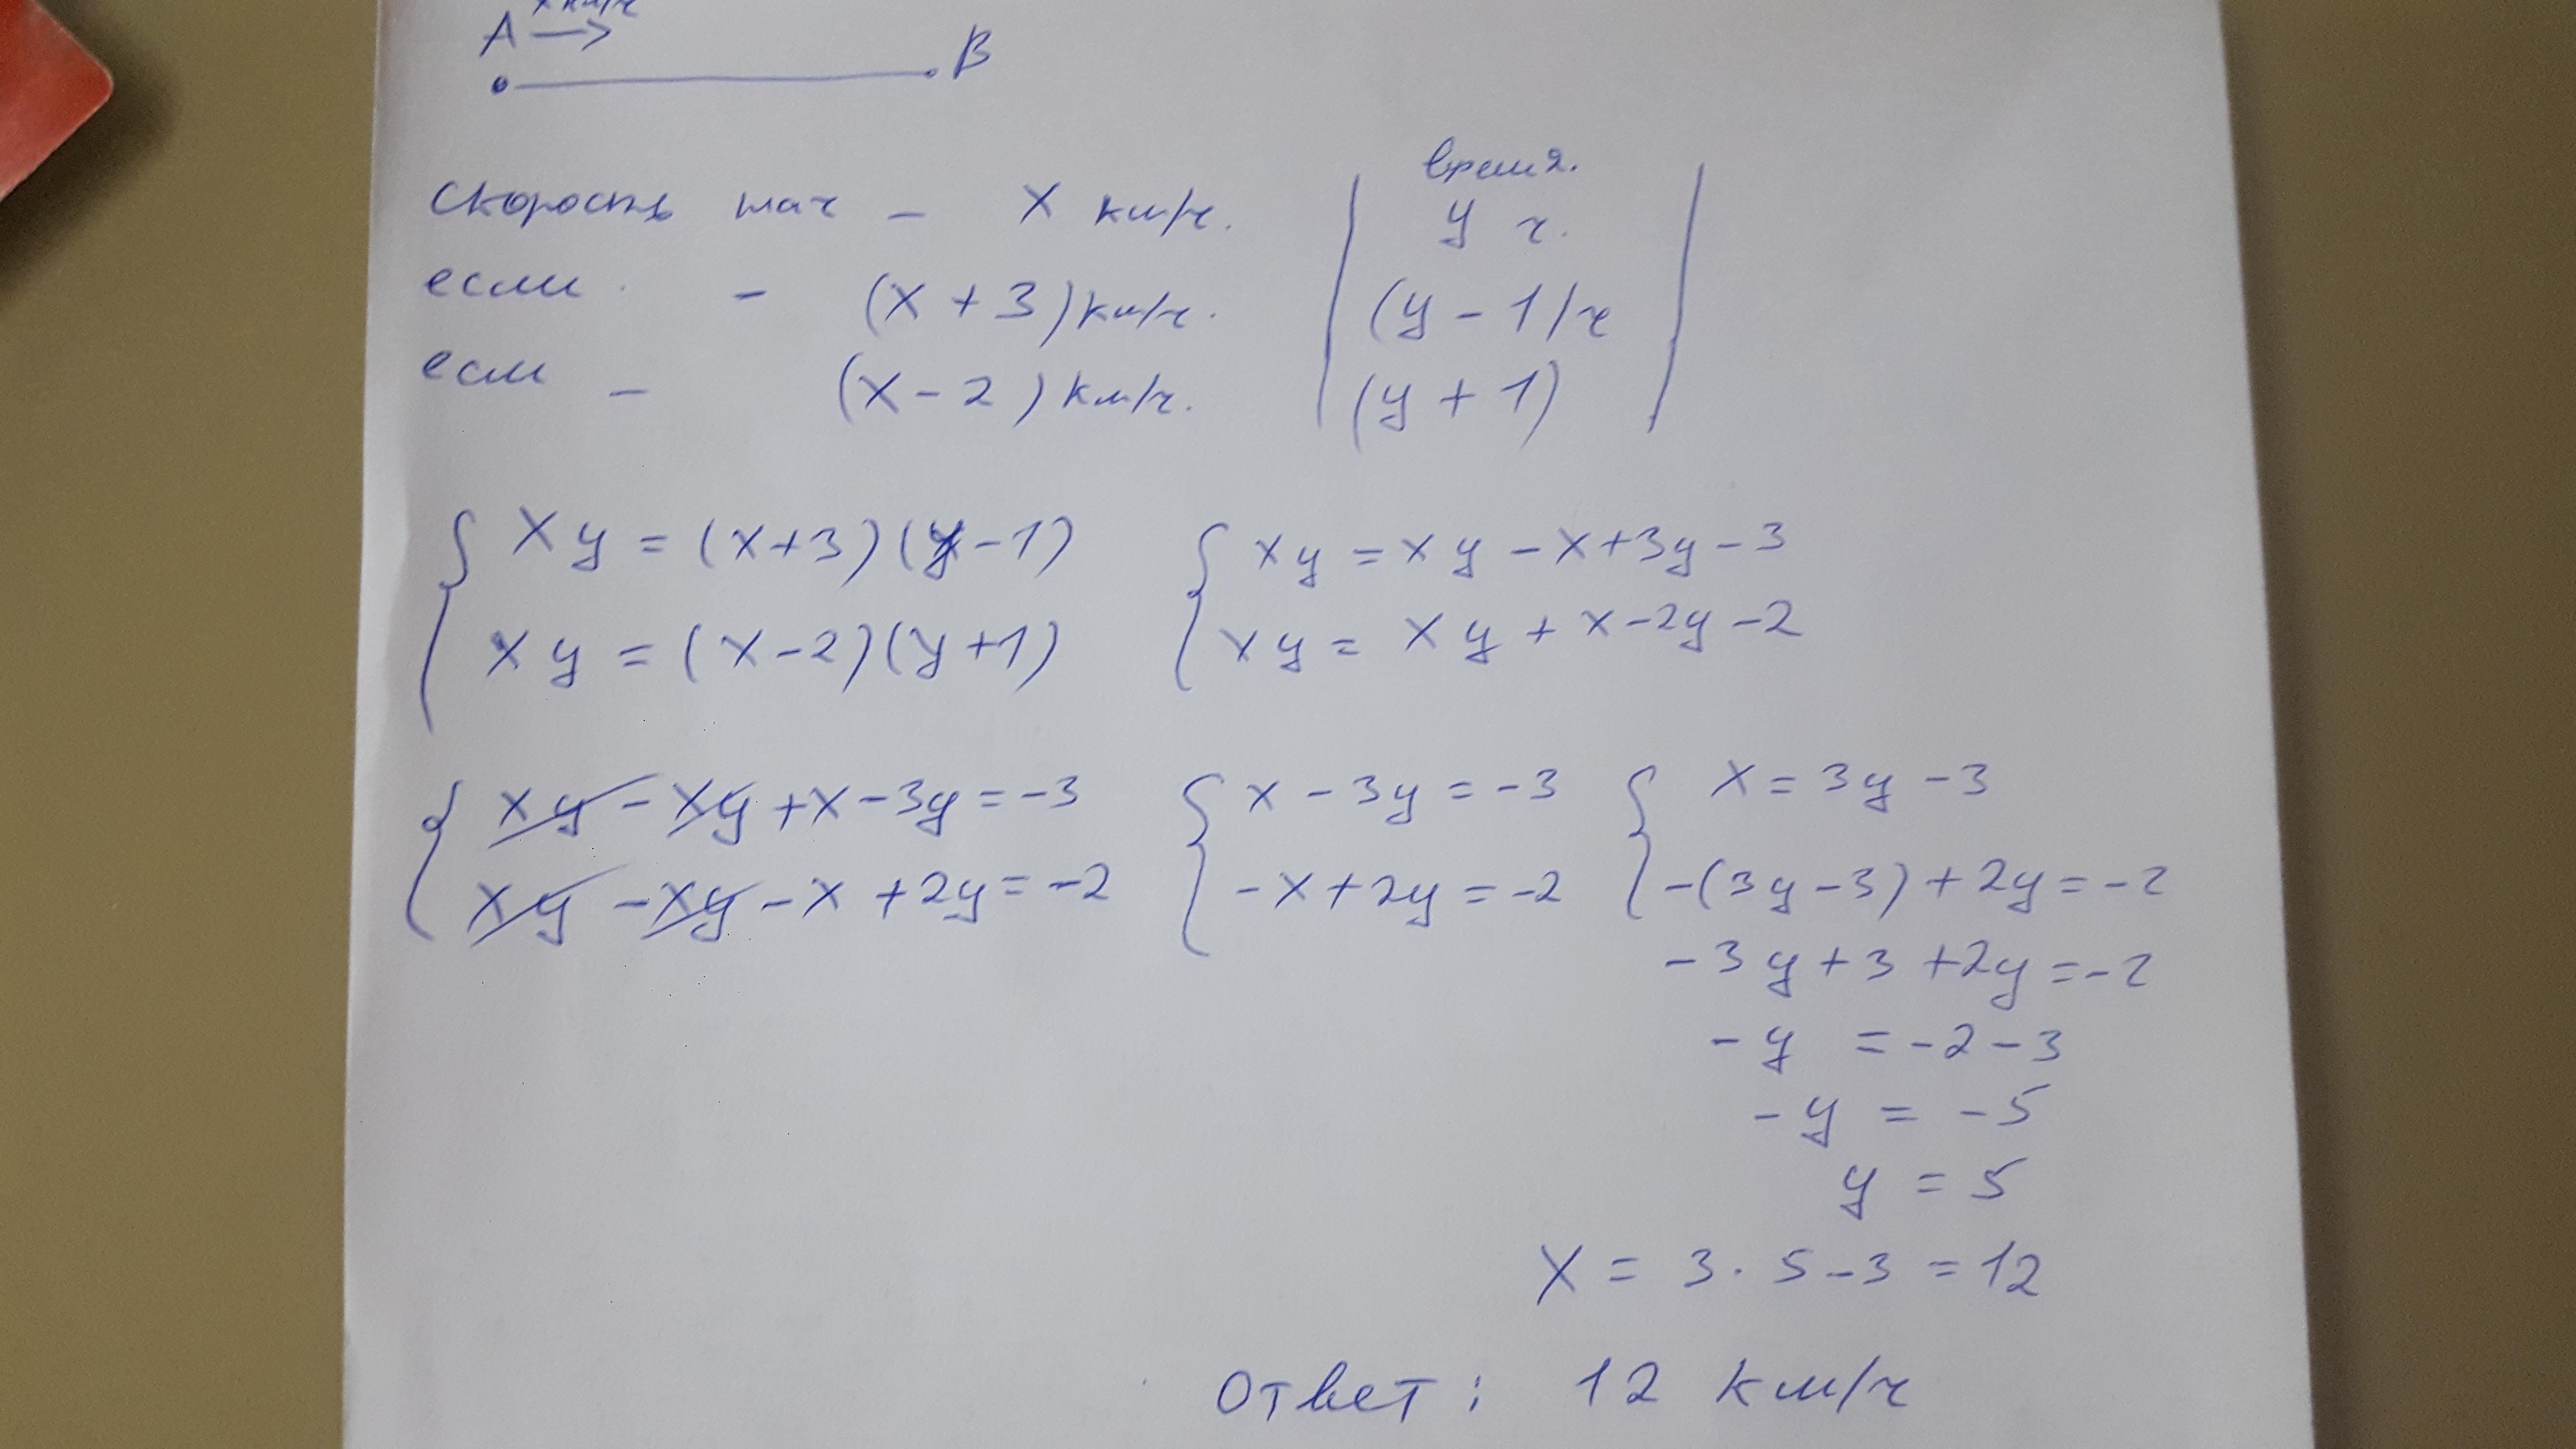 A x км/ч B
время.
Скорость нач – x км/ч. y ч.
если – (x + 3) км/ч. (y – 1) ч
если – (x – 2) км/ч. (y + 1)
xy = (x+3)(y–1) xy = xy – x + 3y – 3
xy = (x–2)(y+1) xy = xy + x – 2y – 2
xy – xy + x – 3y = –3 x – 3y = –3 x = 3y – 3
xy – xy – x + 2y = –2 –x + 2y = –2 –(3y–3) + 2y = –2
–3y + 3 + 2y = –2
–y = –2 – 3
–y = –5
y = 5
x = 3 · 5 – 3 = 12
Ответ: 12 км/ч